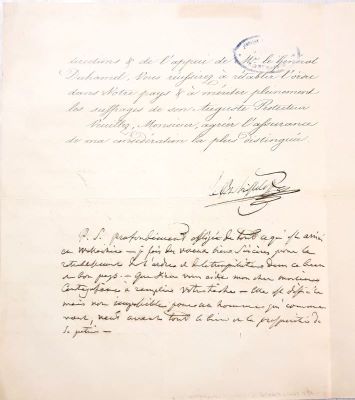 structions & de l'appui de Mr. le Général
Duhamel, Vous réussirez à rétablir l'ordre
dans Votre pays & à mériter pleinement
les suffrages de son Auguste Protecteur
Veuillez, Monsieur, agréer l'assurance
de ma considération la plus distinguée.
P. S. profondément affligé de tout ce qui est arrivé
en – je fais des voeux bien sincères pour le
de l'ordre et de la tranquillité dans ce beau
et bon pays – que Dieu vous aide mon cher monsieur
à remplir votre tâche – Elle est difficile
mais non impossible pour un homme qui comme
vous, veut avant tout le bien et la prospérité de
Sa patrie –